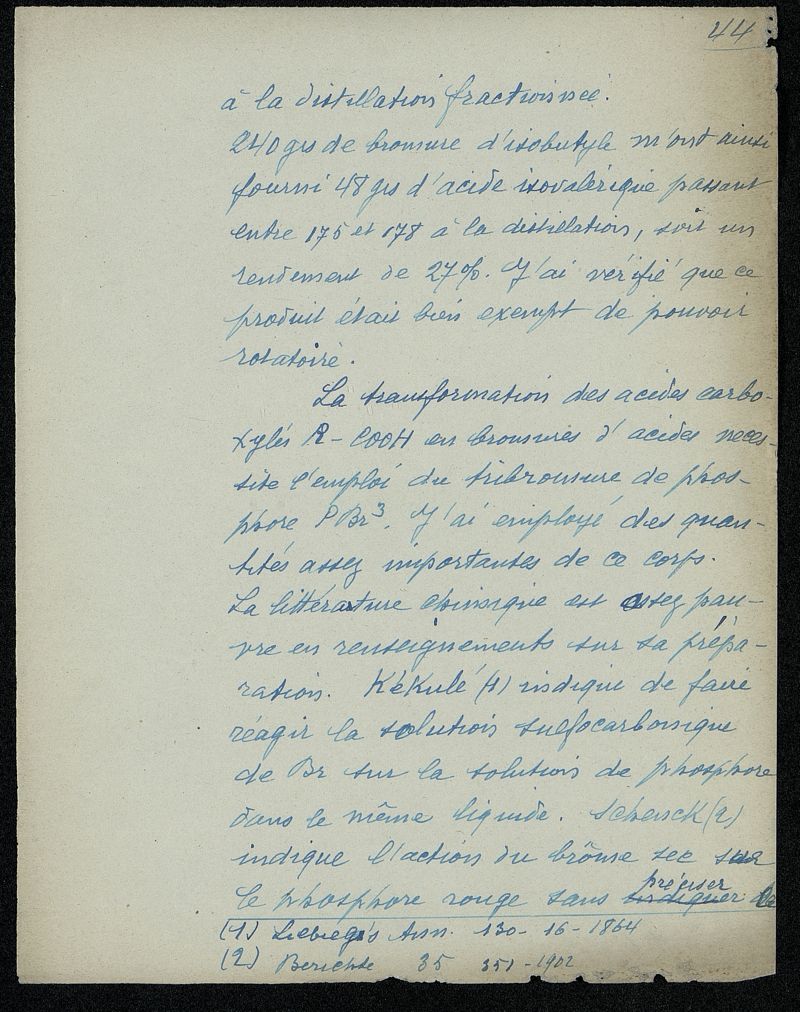 44
à la distillation fractionnée.
240 grs de bromure d'isobutyle m'ont ainsi
fourni 48 grs d'acide isovalérique passant
entre 175 et 178 à la distillation, soit un
rendement de 27%. J'ai vérifié que ce
produit était bien exempt de pouvoir
rotatoire.
La transformation des acides carbo-
xylés R-COOH en bromures d'acides néces-
site l'emploi du tribromure de phos-
phore PBr³. J'ai employé des quan-
tités assez importantes de ce corps.
La littérature chimique est assez pau-
vre en renseignements sur sa prépa-
ration. Kékulé (1) indique de faire
réagir la solution sulfocarbonique
de Br sur la solution de phosphore
dans le même liquide. Schenck (2)
indique l'action du brôme sec sur
le phosphore rouge sans indiquer préciser la
(1) Liebig's Ann. 130-16-1864
(2) Berichte 35 351-1902